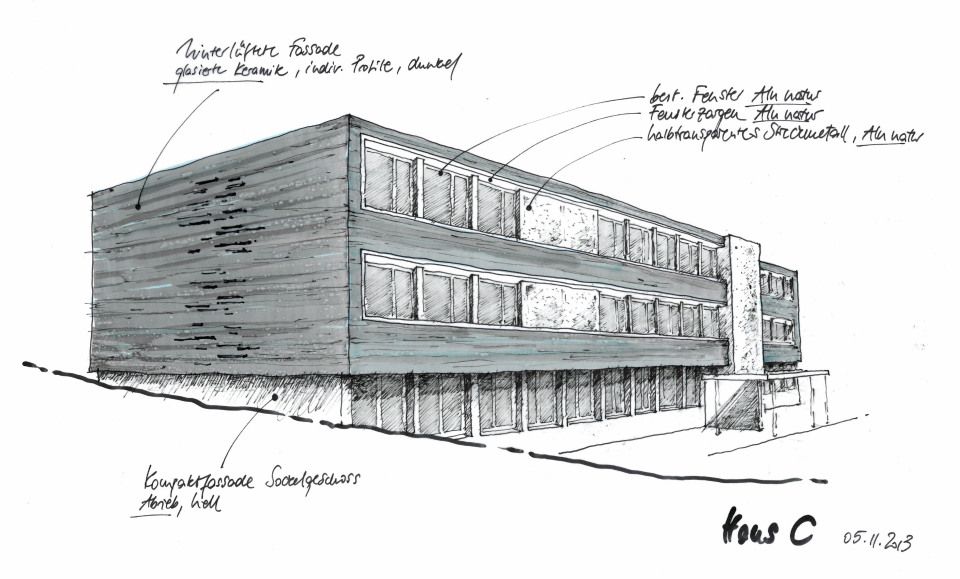 hinterlüftete Fassade
glasierte Keramik, indiv. Profile, dunkel
best. Fenster Alu natur
Fensterzargen Alu natur
halbtransparentes Streckmetall, Alu natur
Kompaktfassade Sockelgeschoss
Abrieb, hell
Haus C 05.11.2013